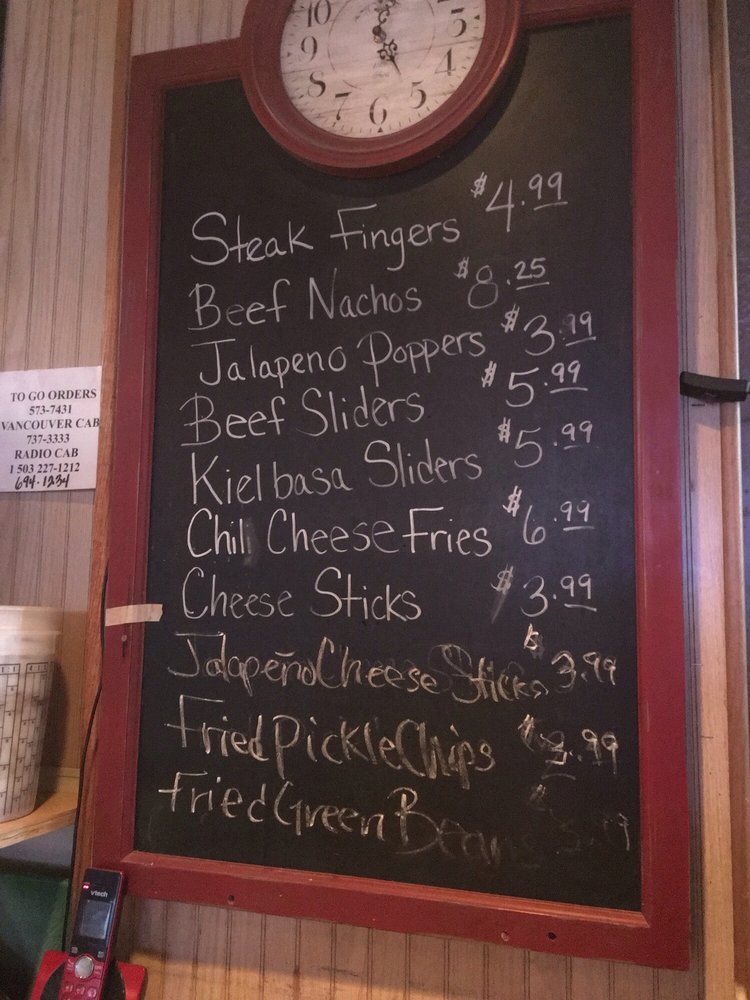 10
9
8
7
6
5
4
3
5
Steak Fingers $4.99
Beef Nachos $8.25
Jalapeno Poppers $3.99
Beef Sliders $5.99
Kielbasa Sliders $5.99
Chili Cheese Fries $6.99
Cheese Sticks $3.99
Jalapeño Cheese Sticks $3.99
Fried Pickle Chips $ .99
Fried Green Beans $
TO GO ORDERS
573-7431
VANCOUVER CAB
737-3333
RADIO CAB
1 503 227-1212
694-1234
vtech